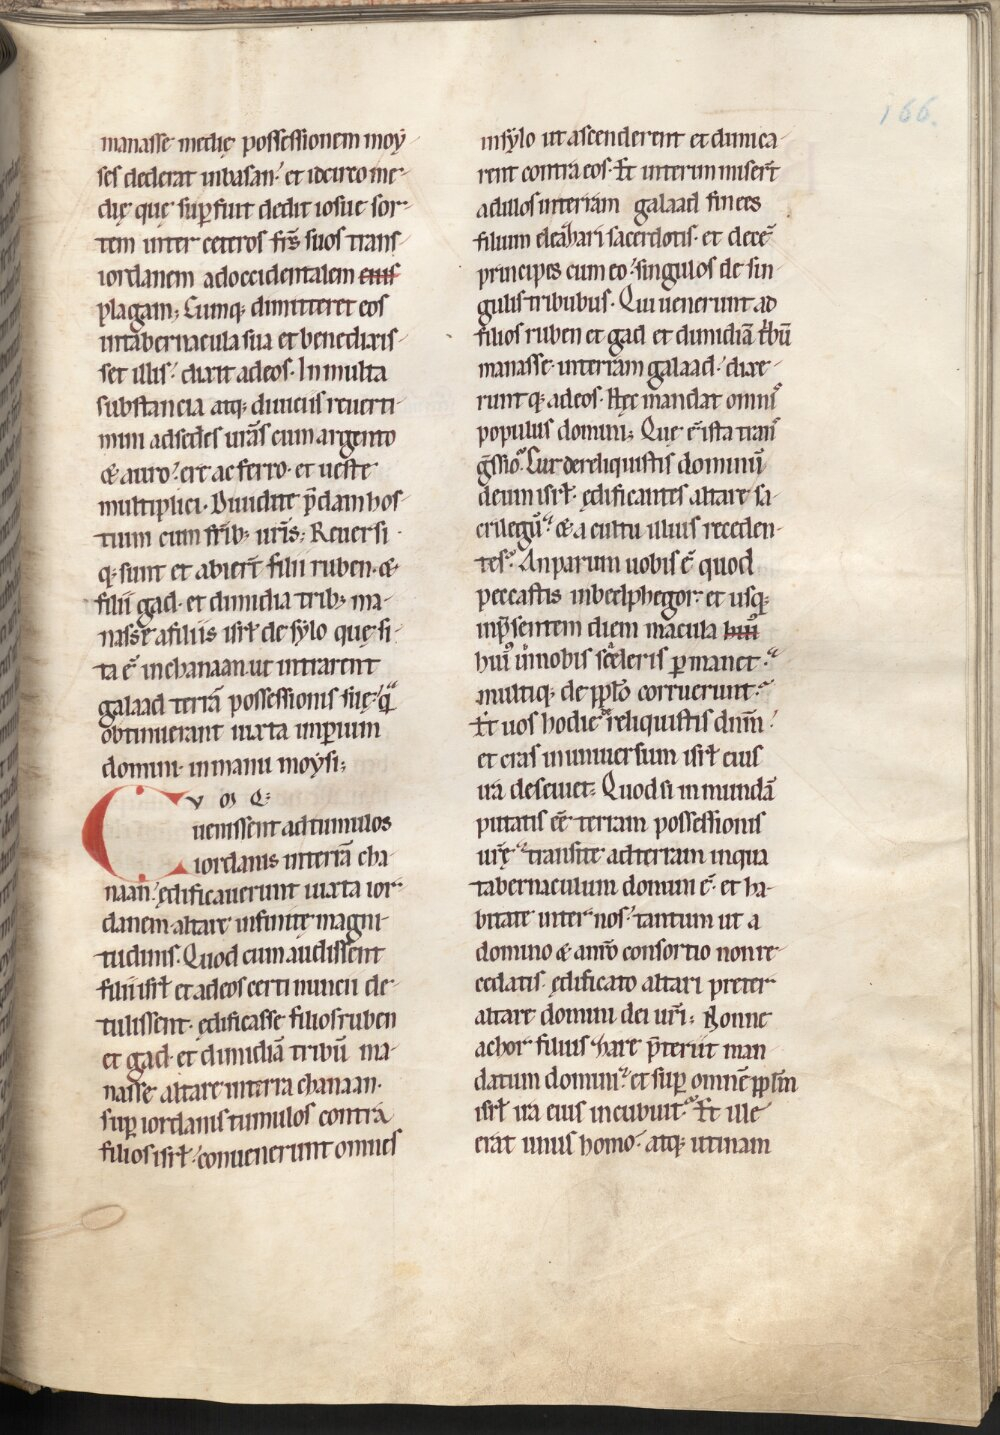 166.
manasse medię possessionem moẏ-
ses dederat inbasan. et idcirco me-
dię quę supfuit dedit iosue sor-
tem inter ceteros fr̄s suos trans-
iordanem adoccidentalem eius
plagam; Cumq; dimitteret eos
intabernacula sua et benedixis-
set illis. dixit adeos. In multa
substantia atq; diuiciis reuerti-
mini adsedes urās cum argento
& auro. ere ac ferro. et ueste
multiplici. Diuidite p̄dam hos-
tium cum frīb; urīs; Reuersi
q; sunt et abier̄t filii ruben. &
filii gad. et dimidia trib; ma-
nasse afiliis isrł de sẏlo quę si-
ta ē inchanaan. ut intrarent
galaad terrā possessionis suę. q̄
obtinuerant iuxta imperium
domini. inmanu moẏsi;
CVMQ;
uenissent adtumulos
iordanis interrā cha-
naan. ędificauerunt iuxta ior-
danem. altare infinitę magni-
tudinis. Quod cum audissent
filii isrł et adeos certi nuncii de-
tulissent. ędificasse filios ruben
et gad. et dimidiā tribū ma-
nasse altare interra chanaan.
sup iordanis tumulos contra
filios isrł. conuenerunt omnes
insẏlo ut ascenderent et dimica-
rent contra eos. Et interim miser̄t
adillos interram galaad finees
filium eleazari sacerdotis. et decē
principes cum eo. singulos de sin-
gulis tribubus. Qui uenerunt ad
filios ruben et gad et dimidiā t̄bū
manasse. interram galaad. dixe-
runt q; adeos. Hęc mandat omnis
populus domini; Quę ē ista trans-
ḡssio. Cur dereliquistis dominū
deum isrł. ędificantes altare sa-
crilegū. & a cultu illius receden-
tes. An parum uobis ē quod
peccastis inbeelphegor. et usq;
inp̄sentem diem macula huius
huius in uobis sceleris pmanet.
multiq; de pp̄lo corruerunt.
Et uos hodie reliquistis dnm̄.
et cras in uniuersum isrł eius
ira deseuiet. Quod si inmundā
putatis eē terram possessionis
urę. transite adterram inqua
tabernaculum domini ē. et ha-
bitate inter nos. tantum ut a
domino & a nr̄o consortio non re-
cedatis. ędificato altari preter
altare domini dei nr̄i; Nonne
achor filius zare p̄teriit man-
datum domini. et sup omnē pp̄lm
isrł ira eius incubuit. Et ille
erat unus homo. atq; utinam